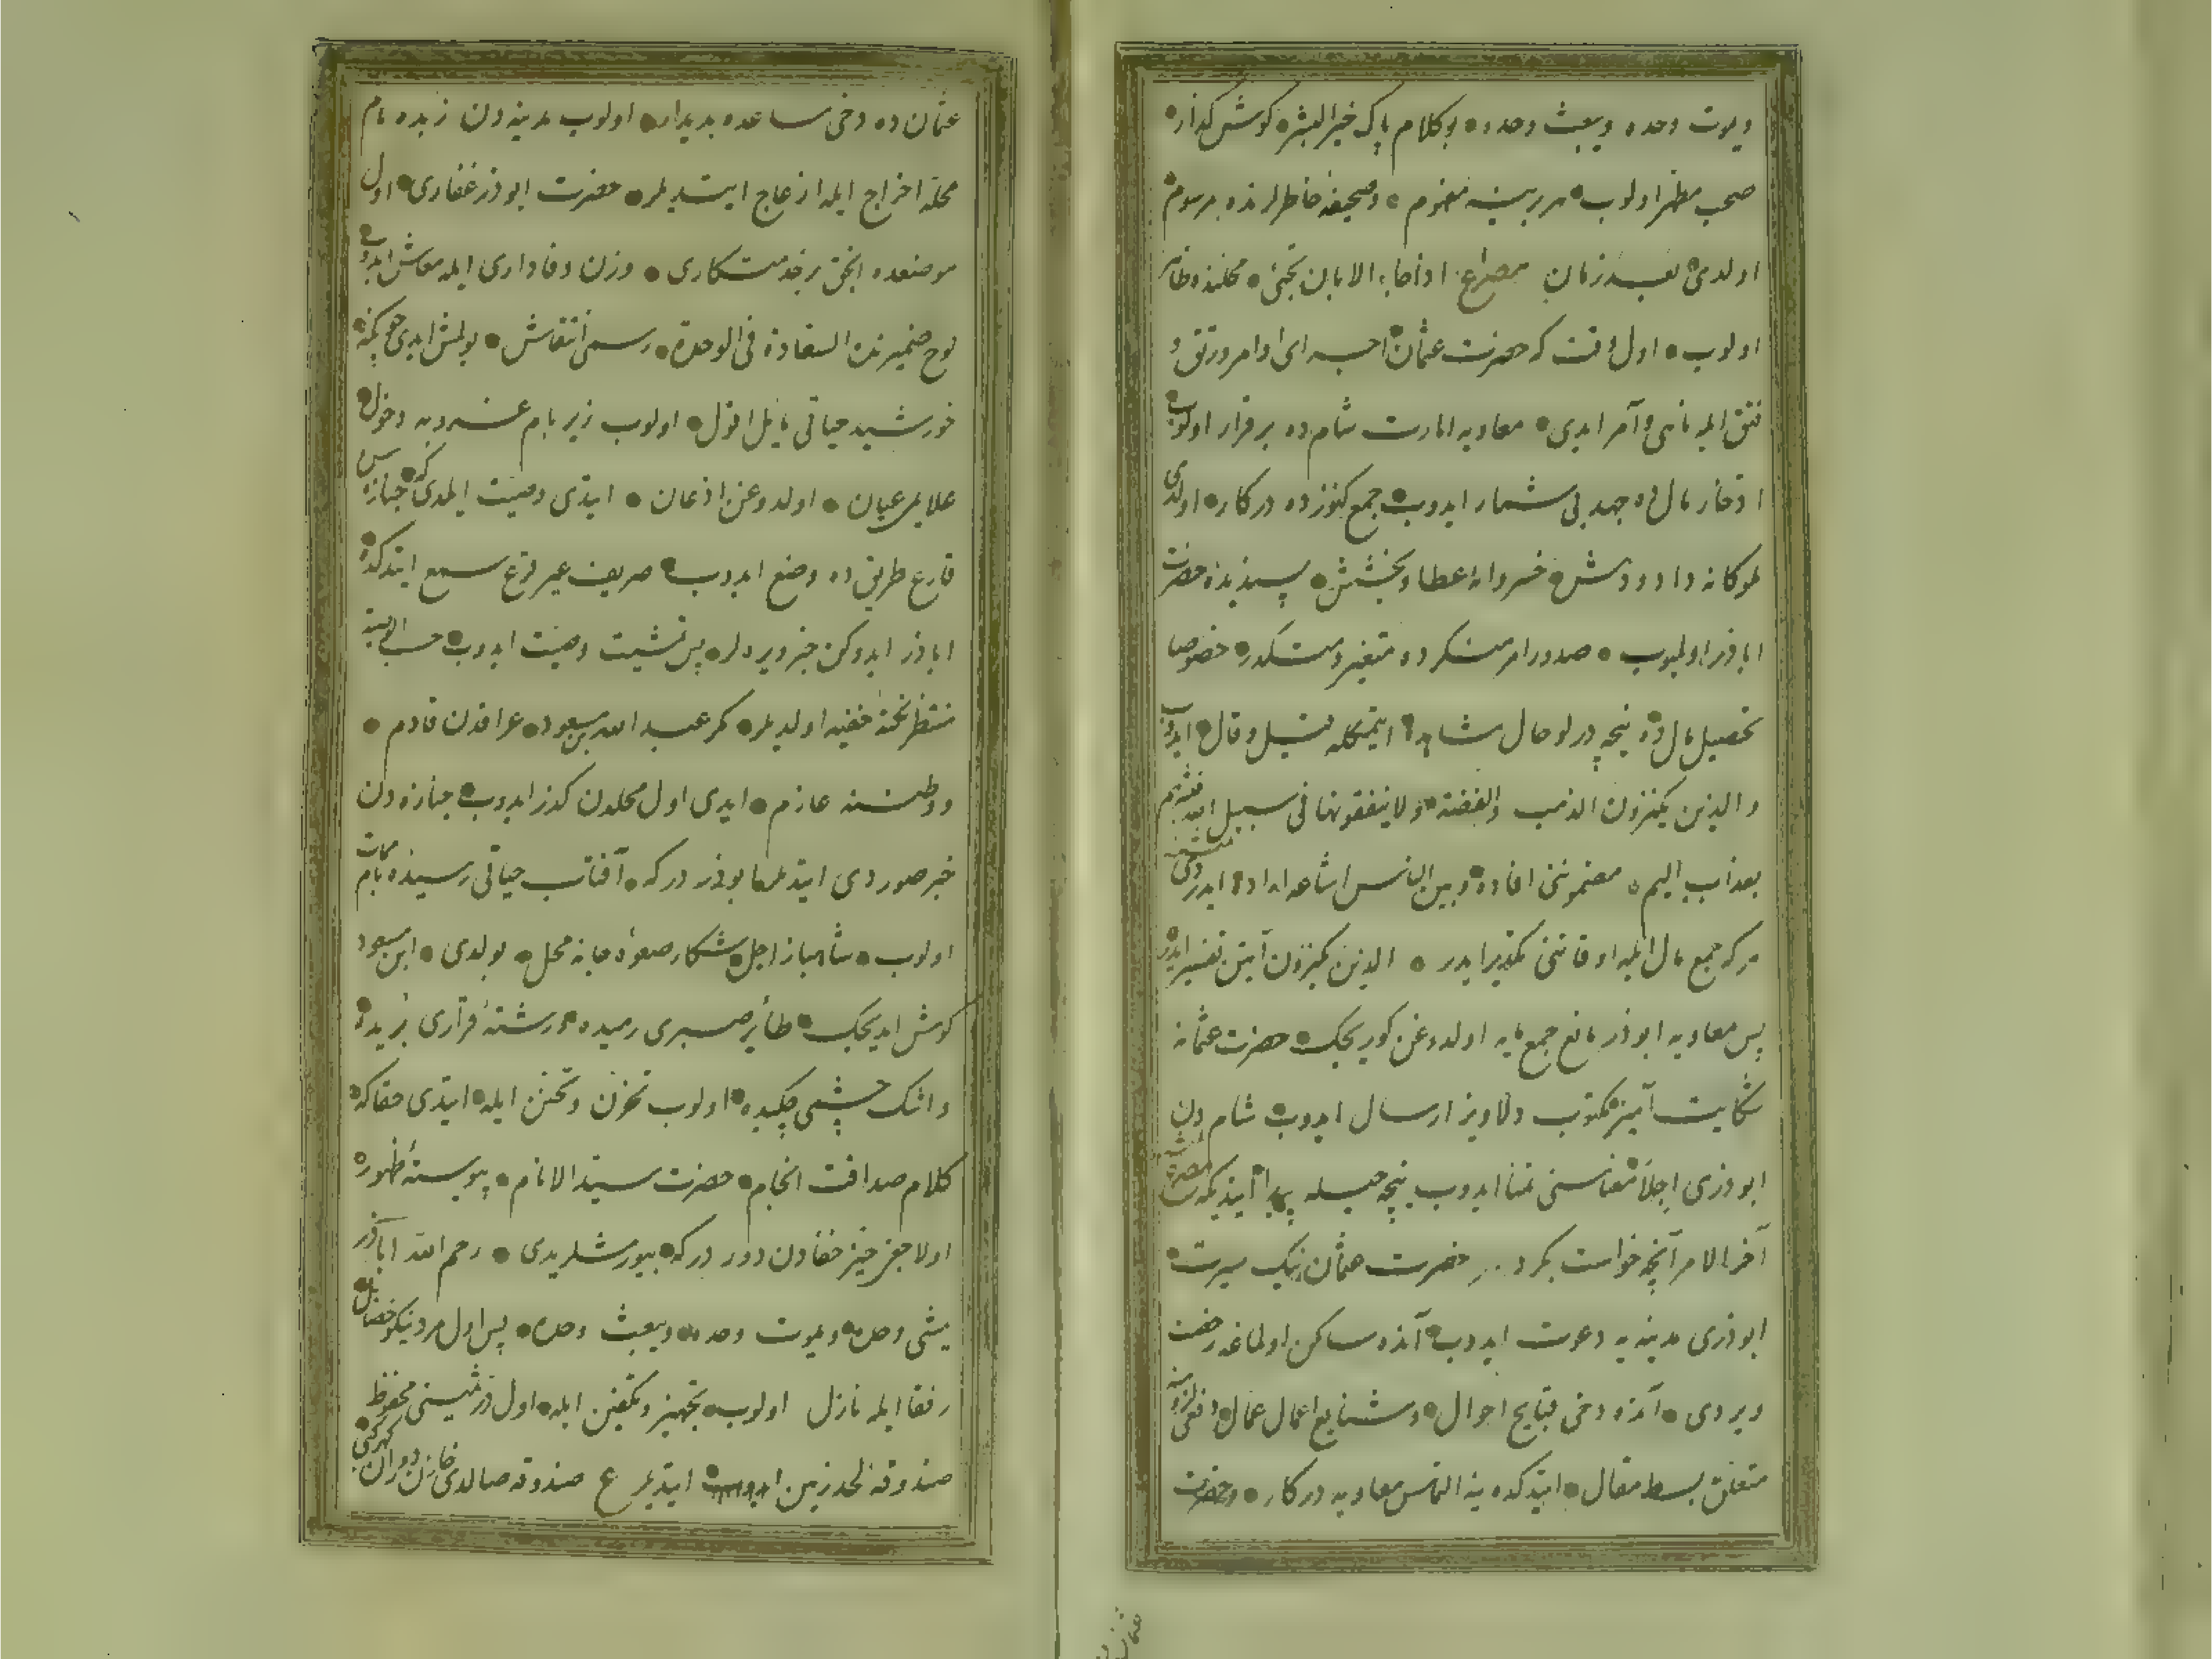 ویموت وحده ویبعث وحده بو کلام پاک خیر البشر کوش کذار
صحب مطهر اولوب هر بریسنه مفهوم وصحیفه خاطرلرنده مرسوم
اولدی بعد زمان مصراع اذا جاء الابان تجئ محلنده ظاهر
اولوب اول وقت که حضرت عثمان اجرای اوامر ورتق و
فتق ایله ناهی وآمر ایدی معاویه امارت شام ده برقرار اولوب
ادخار مال ده جهد بی شمار ایدوب جمع کنوز ده درکار اولدی
ملوکانه داد ودهش خسروانه عطا وبخشش پسندیده حضرت
اباذر اولمیوب صدور امر منکر ده متغیر ومتکدر خصوصا
تحصیل مال ده نیچه درلو حال مشاهده ایتمکله قیل وقال ایدوب
والذین یکنزون الذهب والفضة ولا ینفقونها فی سبیل الله فبشرهم
بعذاب الیم مضموننی افاده وبین الناس اشاعه اراده ایدردی
هر که جمع مال ایله اوقاتنی تکدیر ایدر الذین یکنزون آیتن تفسیر ایدر
پس معاویه ابوذر مانع جمع مایه اولدوغن کوریجک حضرت عثمانه
شکایت آمیز مکتوب دلاویز ارسال ایدوب شام دن
ابوذری اجلا معناسنی تمنا ایدوب نیچه حیله پیدا ایتدیکه
آخر الامر آنچه خواست بکرد حضرت عثمان نیک سیرت
ابوذری مدینه یه دعوت ایدوب آنده ساکن اولماغه رخصت
ویردی آنده دخی قبایح احوال وشنایع اعمال عمال
متعلق بسط مقال ایتدکده ینه التماس معاویه درکار وحضرت
عثمان ده دخی مساعده بدیدار اولوب مدینه دن زبده نام
محله اخراج ایله ازعاج ایتدیلر حضرت ابوذر غفاری اول
موضعده انجق بر خدمتکاری وزن وفاداری ایله معاش ایدوب
لوح ضمیرنده السعادة فی الوحدة رسمی انتقاش بولمش ایدی
خورشید حیاتی مایل افول اولوب زیر بام غروبه دخول
علایمی عیان اولدوغن اذعان ایتدی وصیت ایلدی که جنازه سن
قارع طریق ده وضع ایدوب صریف عیر قرع سمع ایتدکده
اباذر ایدوکن خبر ویره لر پس تمشیت وصیت ایدوب حسب الوصیه
منتظر نحته خفیه اولدیلر مکر عبد الله بن مسعود عراقدن قادم
ووطننه عازم ایدی اول محلدن کذر ایدوب جنازه دن
خبر صوردی ایتدیلر ابوذر درکه آفتاب حیاتی رسیده بام ممات
اولوب شاهباز اجل شکار صعوه جانه محل بولدی ابن مسعود
کوش ایدیجک طایر صبری رمیده ورشته قراری بریده
واشک چشمی چکیده اولوب تحزن وتحنن ایله ایتدی حقاکه
کلام صداقت انجام حضرت سید الانام پیوسته ظهور
اولاجغی حیز خفادن دور درکه بیورمشلریدی رحم الله اباذر
یمشی وحده ویموت وحده ویبعث وحده پس اول مرد نیکو خصایل
رفقا ایله نازل اولوب تجهیز وتکفین ایله اول در ثمینی محفوظ
صندوقه لحد زمین ایتدیلر ع صندوقه صالدی خازن دوران